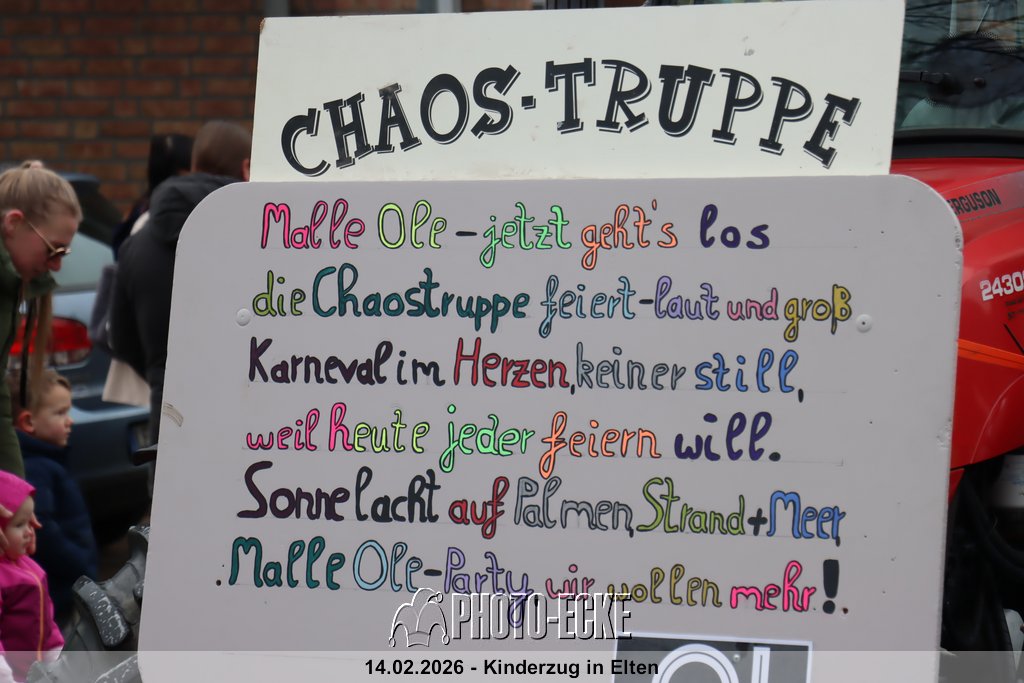 CHAOS-TRUPPE
Malle Ole - jetzt geht's los
die Chaostruppe feiert-laut und groß
Karneval im Herzen, keiner still,
weil heute jeder feiern will.
Sonne lacht auf Palmen, Strand + Meer,
Malle Ole-Party, wir wollen mehr!
FERGUSON
2430
PHOTO-ECKE
14.02.2026 - Kinderzug in Elten